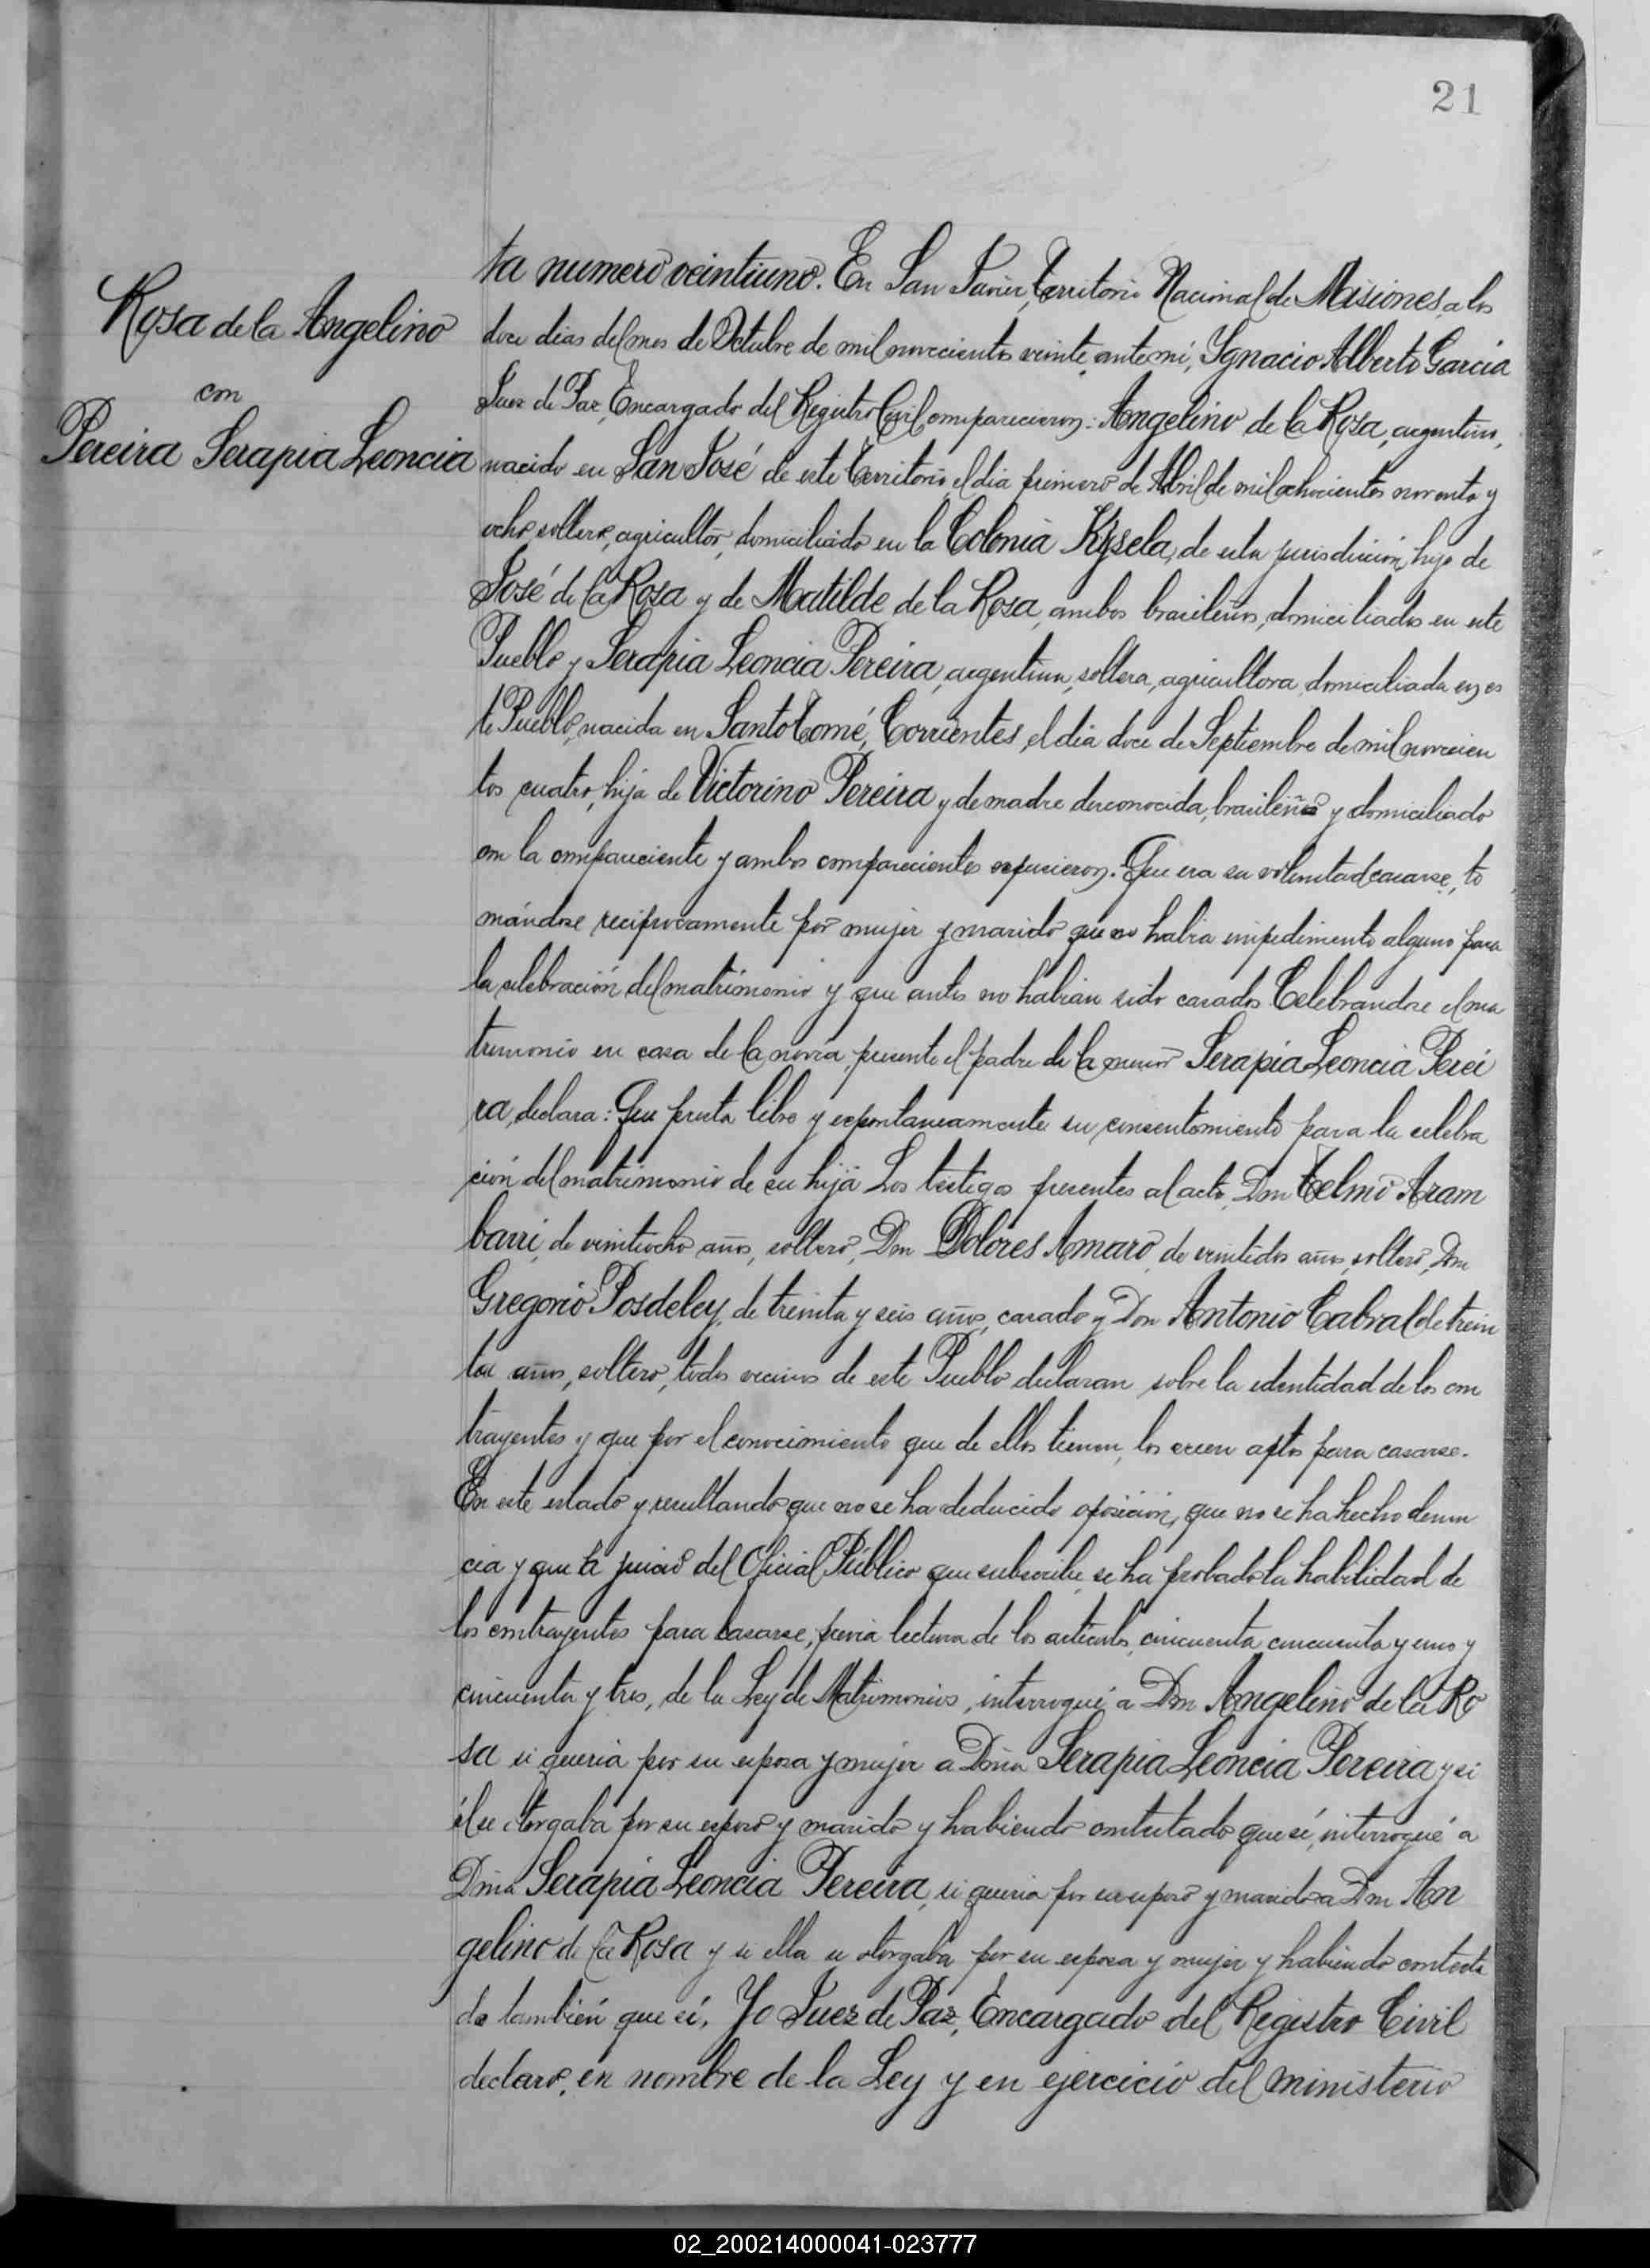 21
Rosa de la Angelino
con
Pereira Serapia Leoncia
ta numero veintiuno. En San Javier, Territorio Nacional de Misiones, a los
doce dias del mes de Octubre de mil novecientos veinte, ante mi, Ygnacio Alberto Garcia
Juez de Paz, Encargado del Registro Civil comparecieron: Angelino de la Rosa, argentino,
nacido en San José de este Territorio, el dia primero de Abril de mil ochocientos noventa y
ocho, soltero, agricultor, domiciliado en la Colonia Kysela, de esta jurisdicción, hijo de
José de la Rosa y de Matilde de la Rosa, ambos brasileños, domiciliados en este
Pueblo y Serapia Leoncia Pereira, argentina, soltera, agricultora, domiciliada en es
te Pueblo, nacida en Santo Tomé, Corrientes, el dia doce de Septiembre de mil novecien
tos cuatro, hija de Victorino Pereira y de madre desconocida, brasileño y domiciliado
con la compareciente y ambos comparecientes expusieron: Que era su voluntad casarse, to
mándose reciprocamente por mujer y marido que no habia impedimento alguno para
la celebración del matrimonio y que antes no habian sido casados Celebrandose el ma
trimonio en casa de la novia, presente el padre de la menor Serapia Leoncia Perei
ra, declara: Que presta libre y espontaneamente su consentimiento para la celebra
ción del matrimonio de su hija Los testigos presentes al acto, Don Telmo Aram
barri, de veintiocho años, soltero, Don Dolores Amaro, de veintidos años, soltero, Don
Gregorio Posdeley, de treinta y seis años, casado y Don Antonio Cabral de trein
ta años, soltero, todos vecinos de este Pueblo declaran sobre la identidad de los con
trayentes y que por el conocimiento que de ellos tienen, los creen aptos para casarse.
En este estado y resultando que no se ha deducido oposición, que no se ha hecho denun
cia y que a juicio del Oficial Público que subscribe, se ha probado la habilidad de
los contrayentes para casarse, previa lectura de los articulos, cincuenta cincuenta y uno y
cincuenta y tres, de la Ley de Matrimonios, interrogué a Don Angelino de la Ro
sa si queria por su esposa y mujer a Doña Serapia Leoncia Pereira y si
él se otorgaba por su esposo y marido y habiendo contestado que sí, interrogué a
Doña Serapia Leoncia Pereira, si queria por su esposo y marido a Don An
gelino de la Rosa y si ella se otorgaba por su esposa y mujer y habiendo contesta
do también que sí. Yo Juez de Paz, Encargado del Registro Civil
declaro, en nombre de la Ley y en ejercicio del ministerio
02_200214000041-023777